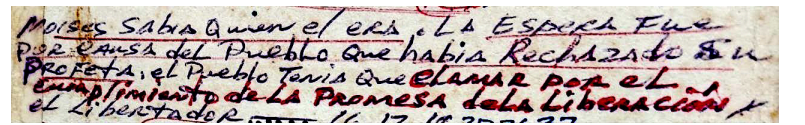 Moises Sabia Quien el era. La Espera Fue
por causa del Pueblo Que habia Rechazado Su
Profeta, el Pueblo Tenia Que Clamar por el
Cumplimiento de La Promesa de la Liberación y
el Libertador